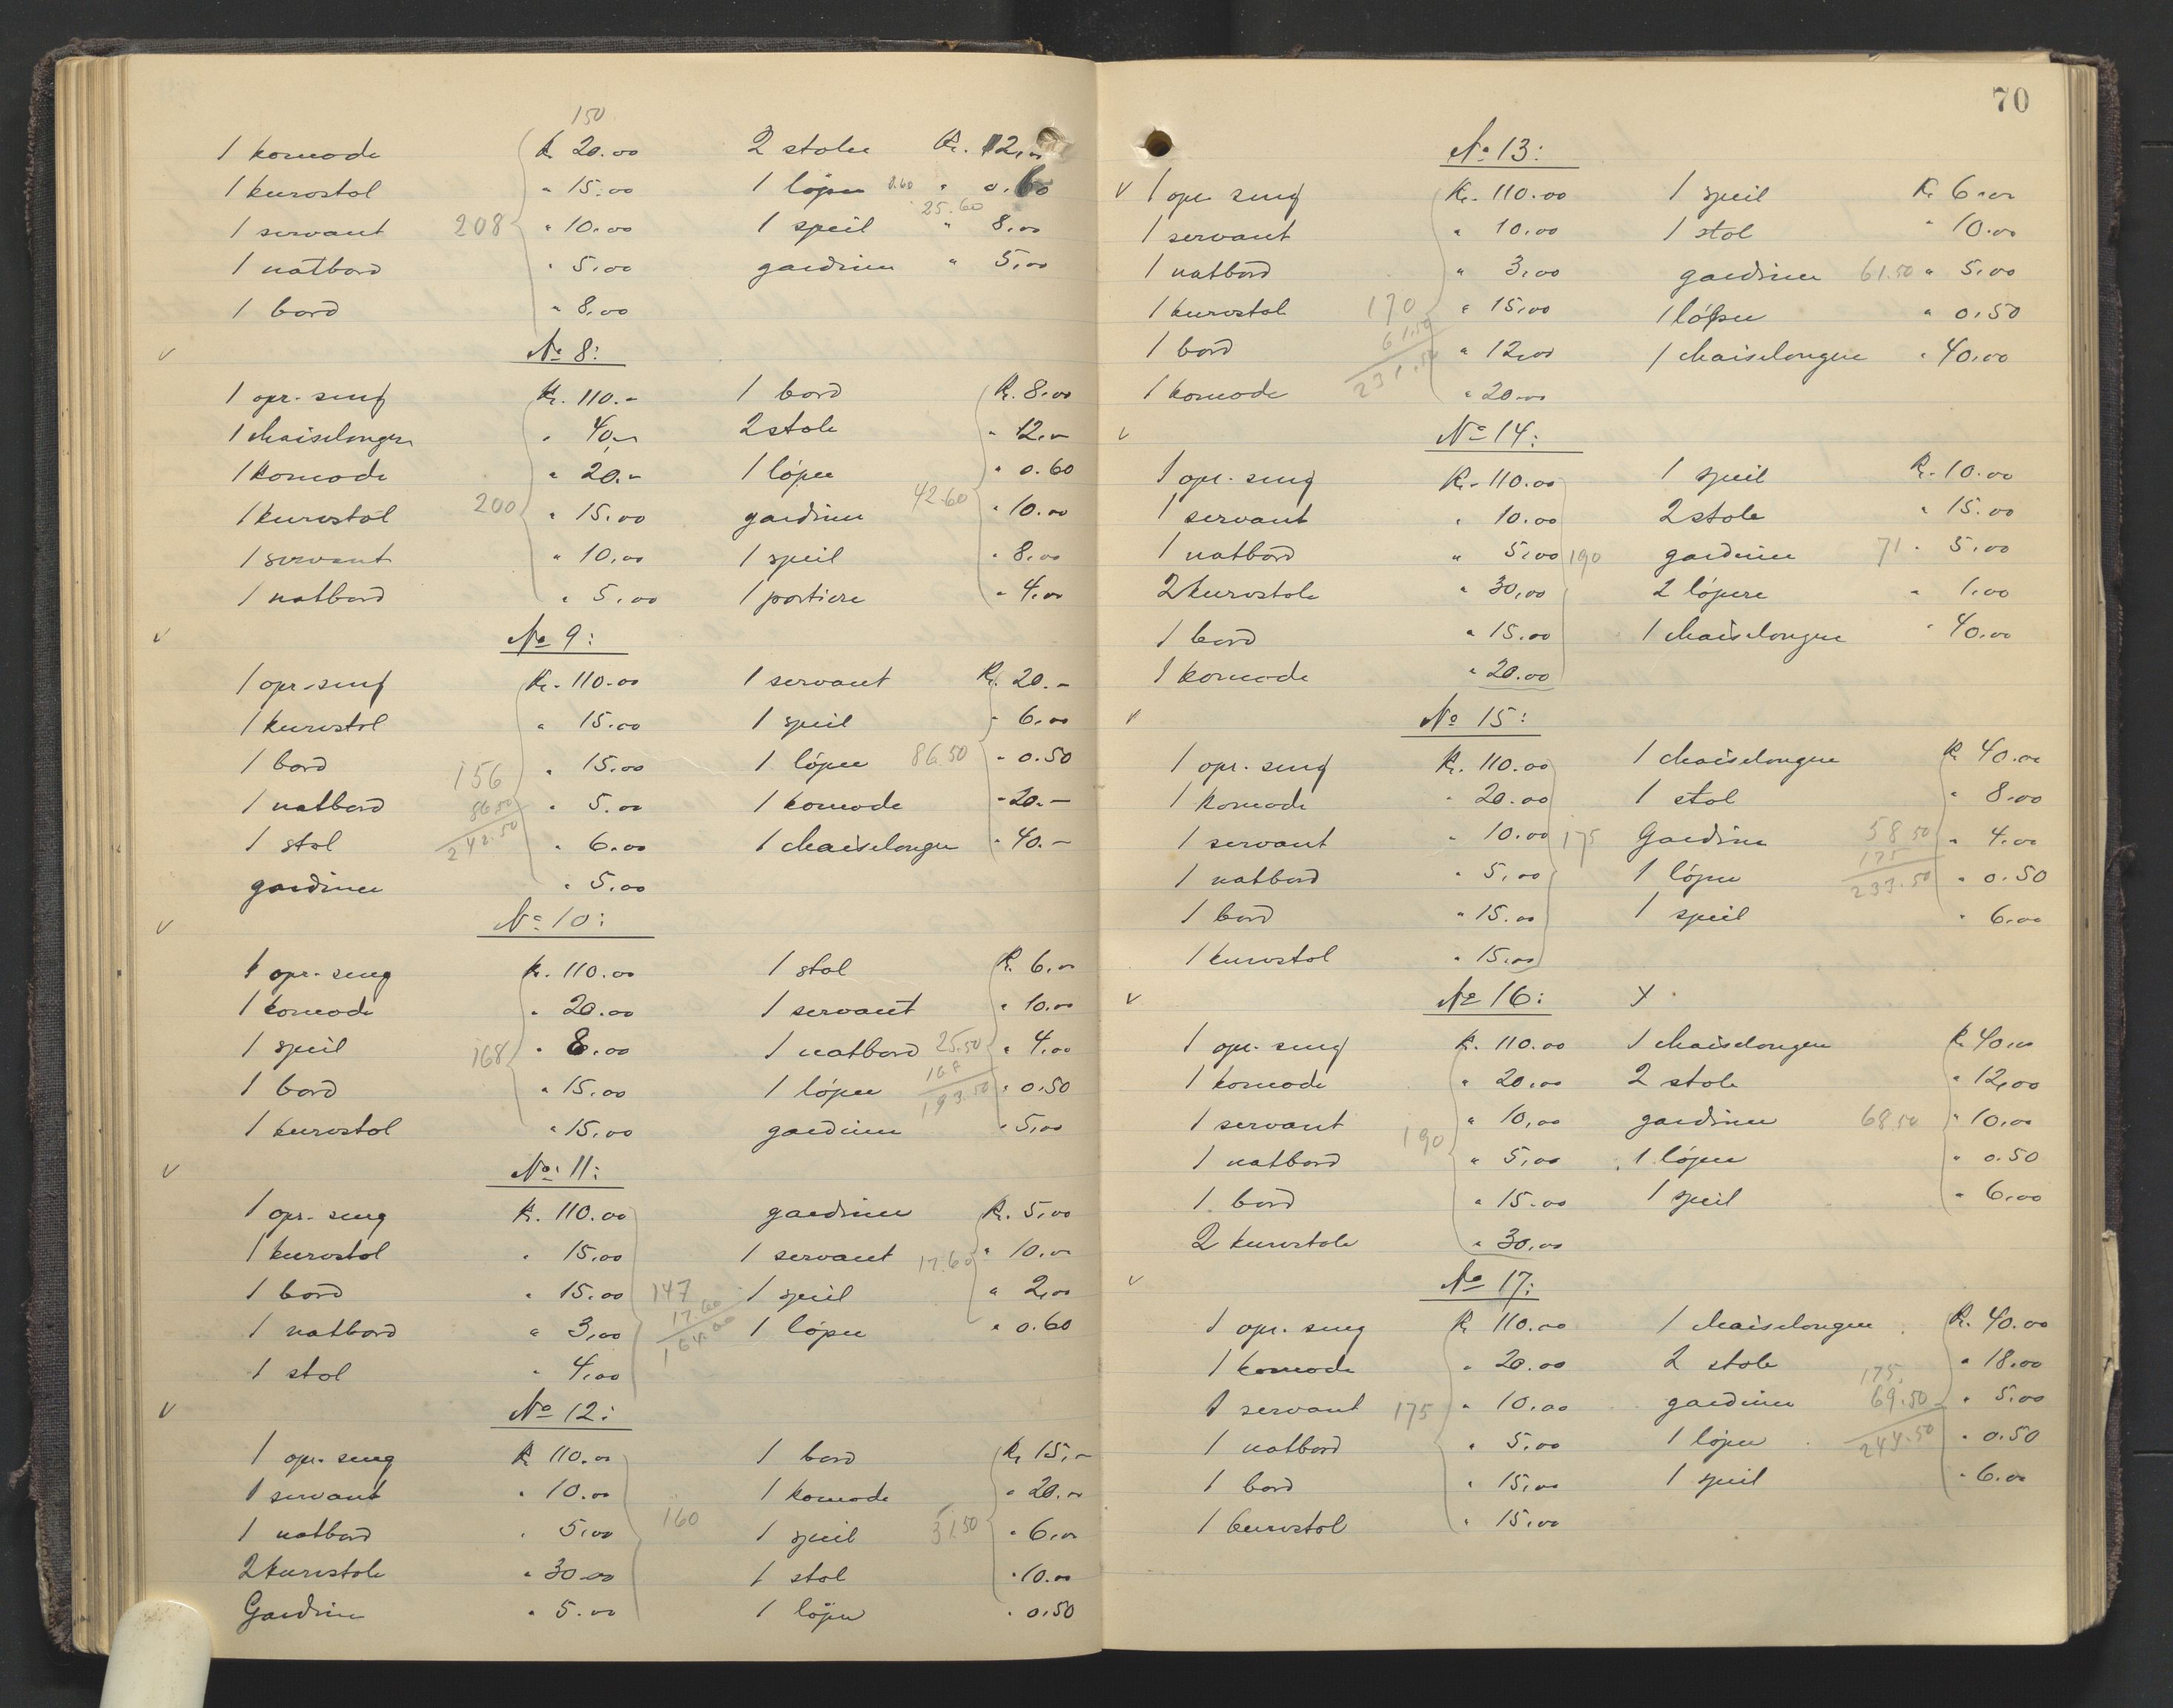 150
1 komode Kr. 20.00 2 stoler Kr. 12,00
1 kurvstol " 15.00 1 löper 0.60 " 0.60
1 servant 208 " 10.00 1 speil 25.60 " 8,00
1 natbord " 5,00 gardiner " 5,00
1 bord " 8,00
v No 8:
1 opr. seng Kr. 110.- 1 bord Kr. 8,00
1 chaiselongen " 40,- 2 stole " 12,-
1 komode " 20.- 1 löper " 0.60
1 kurvstol 200 " 15.00 gardiner 42.60 " 10.00
1 servant " 10,00 1 speil " 8,00
1 natbord " 5,00 1 portiere " 4,00
v No 9:
1 opr. seng Kr. 110.00 1 servant Kr. 20.-
1 kurvstol " 15.00 1 speil " 6,00
1 bord 156 " 15.00 1 löper 86.50 " 0.50
1 natbord 86.50 " 5.00 1 komode " 20.-
1 stol 242.50 " 6.00 1 chaiselongen " 40.-
gardiner " 5,00
v No 10:
1 opr. seng Kr. 110.00 1 stol Kr. 6,00
1 komode " 20.00 1 servant " 10.00
1 speil 168 " 8.00 1 natbord 25.50 " 4,00
1 bord " 15,00 1 löper 168 193.50 " 0.50
1 kurvstol " 15,00 gardiner " 5,00
v No: 11:
1 opr. seng Kr. 110.00 gardiner Kr. 5,00
1 kurvstol " 15.00 1 servant 17.60 " 10.00
1 bord " 15.00 147 1 speil " 2,00
1 natbord " 3,00 17.60 1 löper " 0.60
1 stol " 4,00
v No 12:
1 opr. seng Kr. 110.00 1 bord Kr. 15,-
1 servant " 10.00 1 komode " 20.00
1 natbord " 5,00 160 1 speil 51.50 " 6,00
2 kurvstole " 30.00 1 stol " 10.00
Gardiner " 5.00 1 löper " 0.50
70
No 13:
v 1 opr. seng Kr. 110.00 1 speil Kr. 6.00
1 servant " 10.00 1 stol " 10.00
1 natbord " 3,00 gardiner 61.50 " 5,00
1 kurvstol 170 " 15,00 1 löper " 0.50
1 bord 61.50 " 12,00 1 chaiselongen " 40,00
1 komode 231.50 " 20.00
v No 14:
1 opr. seng Kr. 110.00 1 speil Kr. 10.00
1 servant " 10.00 2 stole " 15.00
1 natbord " 5,00 190 gardiner 71 " 5,00
2 kurvstole " 30,00 2 löpere " 1,00
1 bord " 15.00 1 chaiselongen " 40,00
1 komode " 20.00
v No 15:
1 opr. seng Kr. 110.00 1 chaiselongen Kr. 40.00
1 komode " 20.00 1 stol " 8,00
1 servant " 10.00 175 Gardiner 58.50 " 4,00
1 natbord " 5,00 1 löper 175 233.50 " 0.50
1 bord " 15.00 1 speil " 6,00
1 kurvstol " 15,00
v No 16: x
1 opr. seng Kr. 110.00 1 chaiselongen Kr. 40,00
1 komode " 20,00 2 stole " 12,00
1 servant 190 " 10,00 gardiner 68.50 " 10,00
1 natbord " 5,00 1 löper " 0.50
1 bord " 15.00 1 speil " 6,00
2 kurvstole " 30,00
v No 17:
1 opr. seng Kr 110.00 1 chaiselongen Kr. 40.00
1 komode " 20.00 2 stole 175 " 18.00
1 servant 175 " 10,00 gardiner 69.50 " 5,00
1 natbord " 5,00 1 löper 244.50 " 0.50
1 bord " 15,00 1 speil " 6.00
1 kurvstol " 15,00